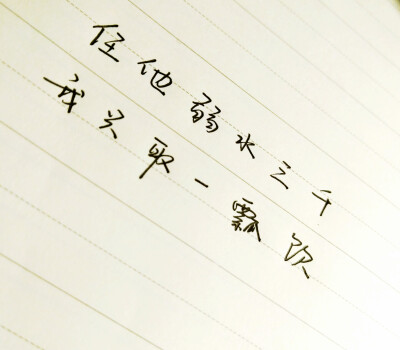 任他弱水三千
我只取一瓢饮